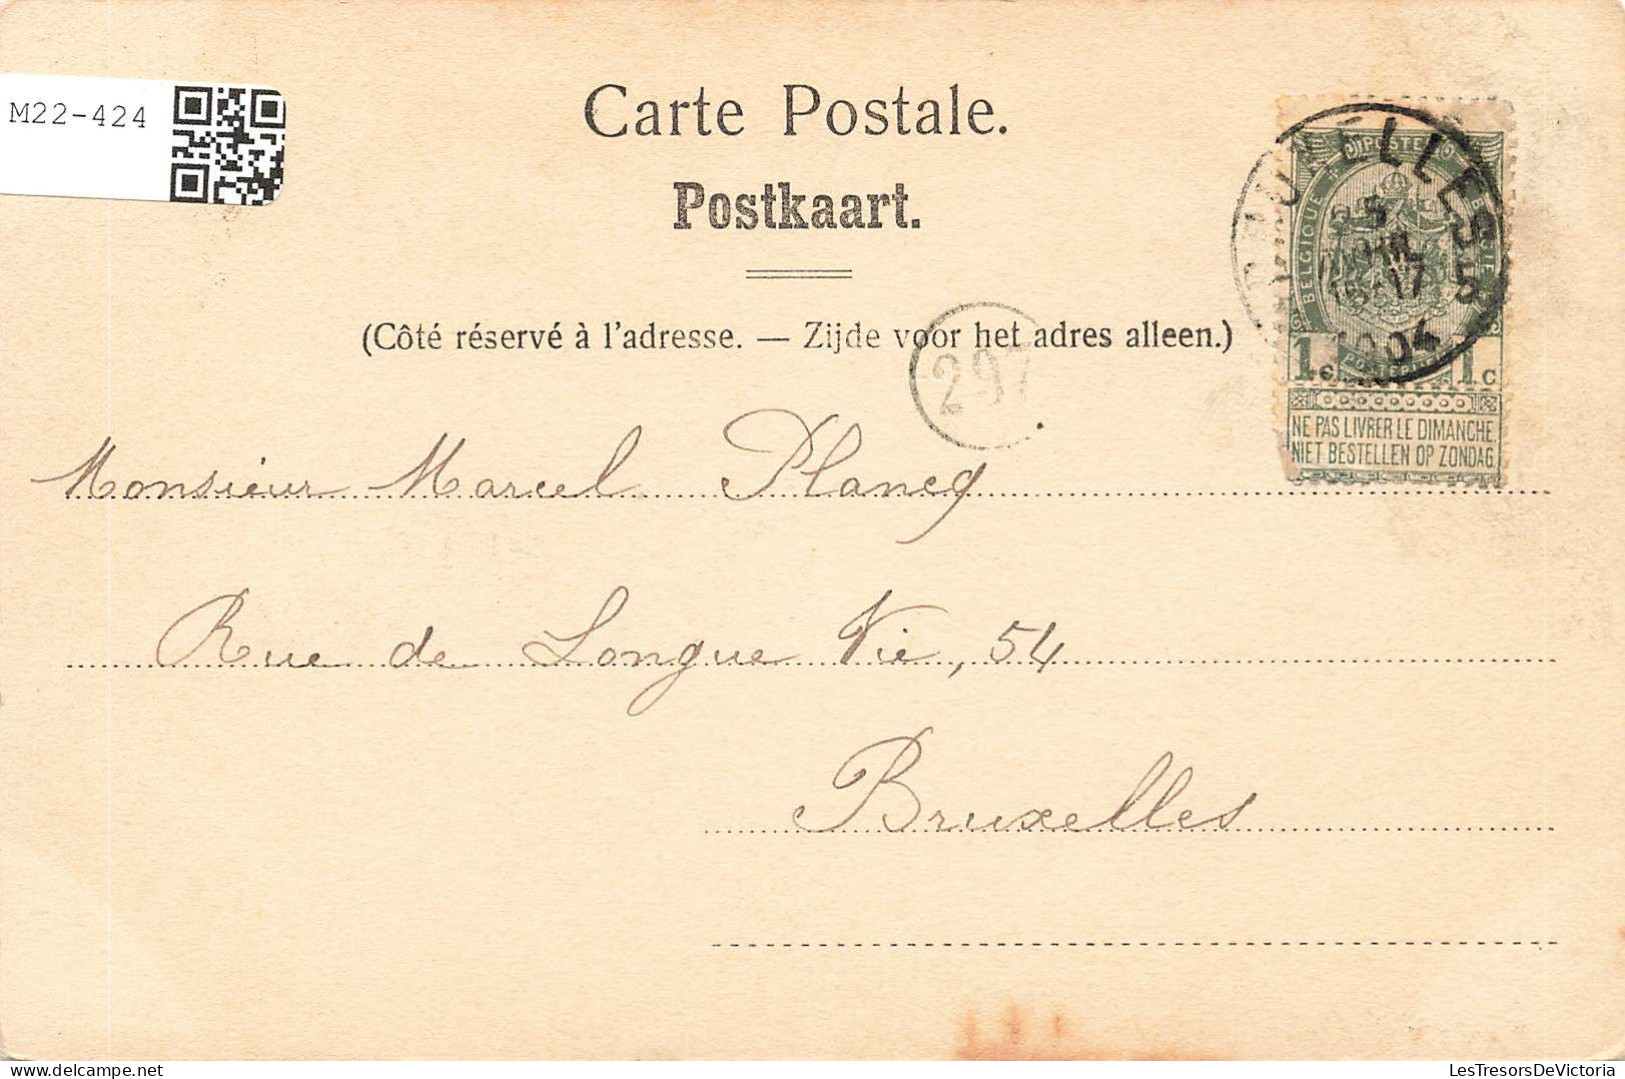 M22-424
Carte Postale.
Postkaart.
(Côté réservé à l'adresse. — Zijde voor het adres alleen.)
297
BRUXELLES 5
AVRIL
1904
POSTES
BELGIQUE
BELGIE
1 c 1 c
NE PAS LIVRER LE DIMANCHE
NIET BESTELLEN OP ZONDAG
Monsieur Marcel Plancq
Rue de Longue Vie, 54
Bruxelles
LesTresorsDeVictoria